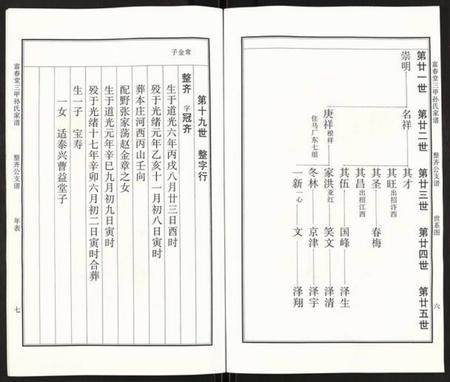 富春堂三甲孙氏家谱 整齐公支谱 世系图 六
第廿一世 第廿二世 第廿三世 第廿四世 第廿五世
崇明 名祥 其才
其旺 出招许西
其圣 春梅
其昌 出招江西
其伍 国峰 泽生
庚祥 根祥 家洪 亚红 笑文 泽清
住马厂东七组
冬林 京津 泽宇
一新 一心 文 泽翔
常金子
第十九世 整字行
整齐 字冠齐
生于道光六年丙戌八月廿三日酉时
殁于光绪元年乙亥十一月初八日寅时
葬本庄河西丙山壬向
配野张家荡赵金章之女
生于道光元年辛巳九月初九日寅时
殁于光绪十七年辛卯六月初二日寅时合葬
生一子 宝寿
一女 适泰兴曹益堂子
富春堂三甲孙氏家谱 整齐公支谱 年表 七